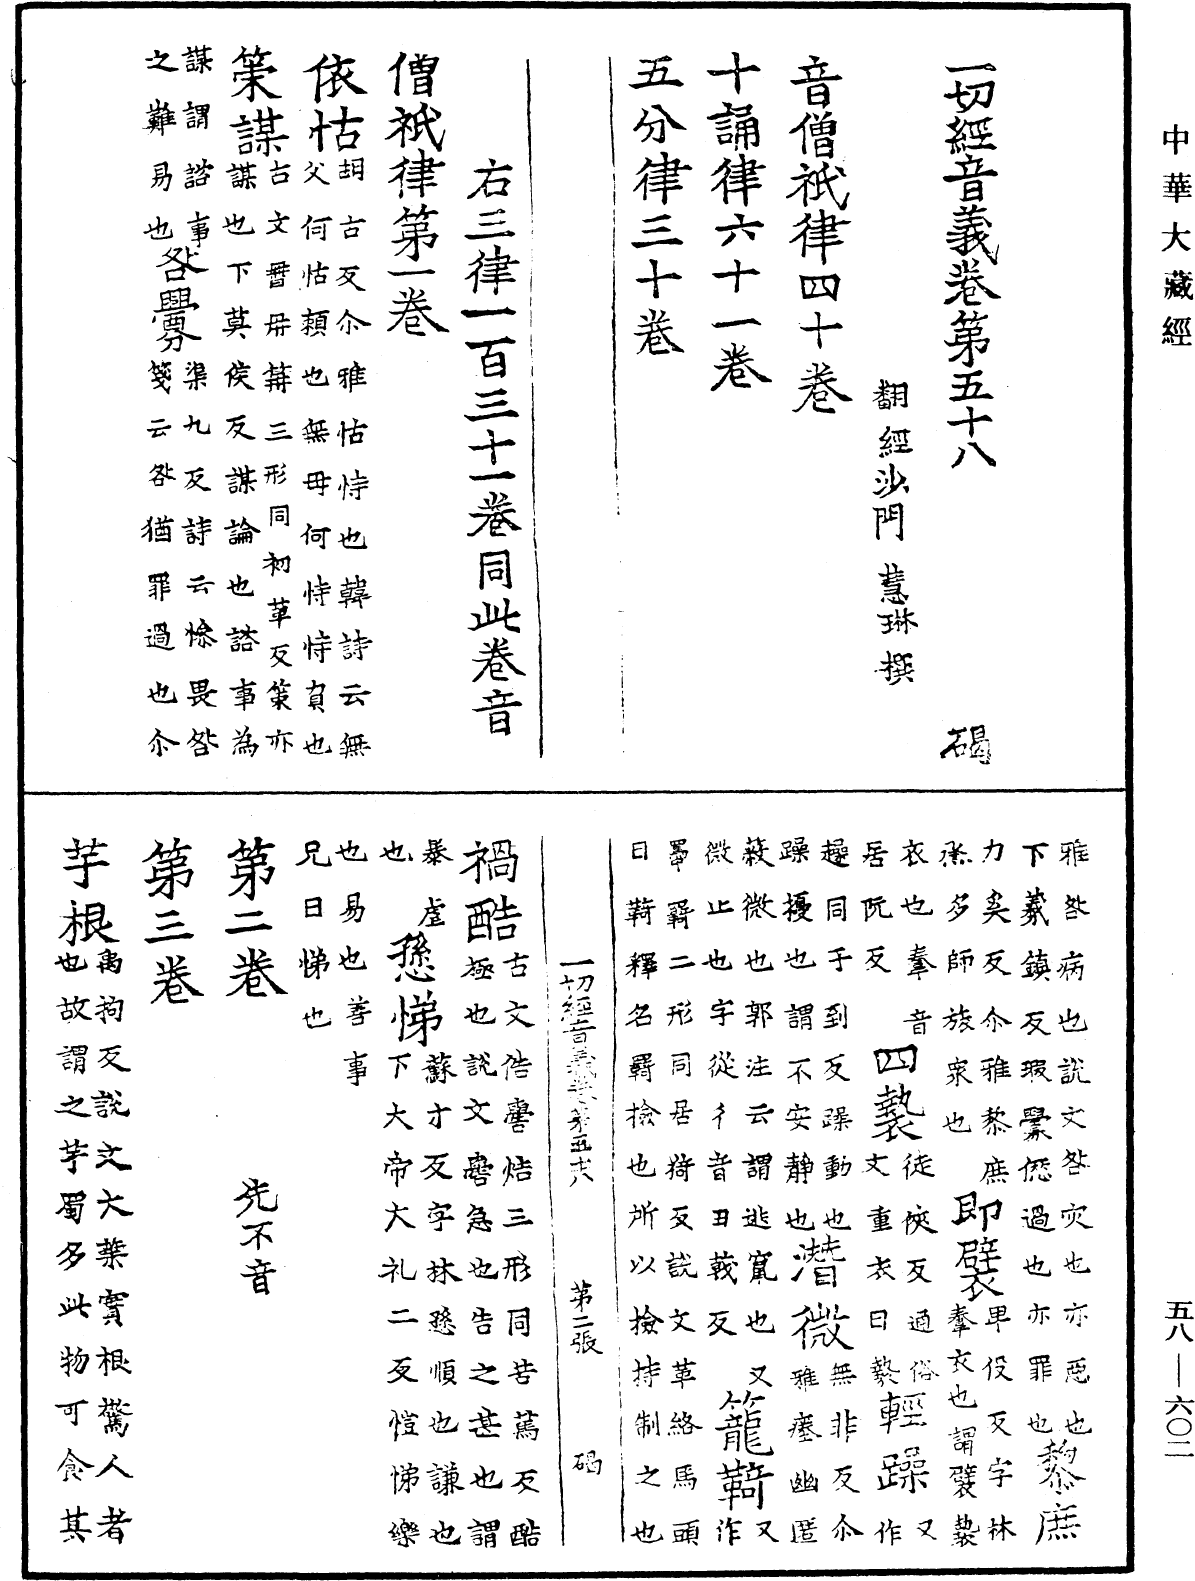 中華大藏經
一切經音義卷第五十八
碣
翻經沙門 慧琳 撰
音僧祇律四十卷
十誦律六十一卷
五分律三十卷
右三律一百三十一卷同此卷音
僧祇律第一卷
依怙胡古反尒雅怙恃也韓詩云無
父何怙賴也無母何恃恃負也
筞謀古文𠕋𠕋𥬰三形同初革反策亦
謀也下莫侯反謀論也諮事為
謀謂諮事
之難易也
咎釁渠九反詩云慘畏咎
箋云咎猶罪過也尒
雅咎病也說文咎灾也亦惡也
下羲鎮反瑕釁𠎝過也亦罪也
黎庶
力奚反尒雅黎庶
烝多師旅衆也
即襞卑役反字林
襞衣也謂襞褺
衣也韏音
居阮反
四褺徒俠反通俗
文重衣曰褺
輕躁又作
趮同子到反躁動也
躁擾也謂不安靜也
潛微無非反尒
雅瘞幽匿
蔽微也郭注云謂逃竄也又
微止也字從彳音丑𦍧反
籠䩭又作
𦌭羇二形同居猗反說文革絡馬頭
曰䩭釋名羇檢也所以檢持制之也
一切經音義卷第五十八 第二張 碣
禍酷古文俈嚳焅三形同苦篤反酷
極也說文嚳急也告之甚也謂
暴虐
也
愻悌蘇寸反字林愻順也謙也
下大帝大礼二反愷悌樂
也易也善事
兄曰悌也
第二卷 先不音
第三卷
芋根禹拘反說文大葉實根驚人者
也故謂之芋蜀多此物可食其
五八—六〇二